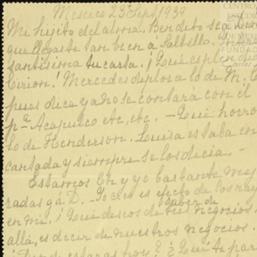 Mexico 23 Sept/930
Mi hijito del alma. Bendito sea Dios
que llegaste tan bien a Saltillo.
santisima tu carta. ¡Que esplendido
Cirion. Mercedes deploralo de M. C
pues dice ya no se contará con el
pa Acapulco etc, etc. — Qué horro
lo de Henderson. Luisa es taba en
cantada y siempre se los decia. —
Estamos En y yo bastante me
radas ga D. — Yo creo es efecto de los ray
en mi. ¡Que deseos de saber de tus negocios.
allá, es decir de nuestros negocios.